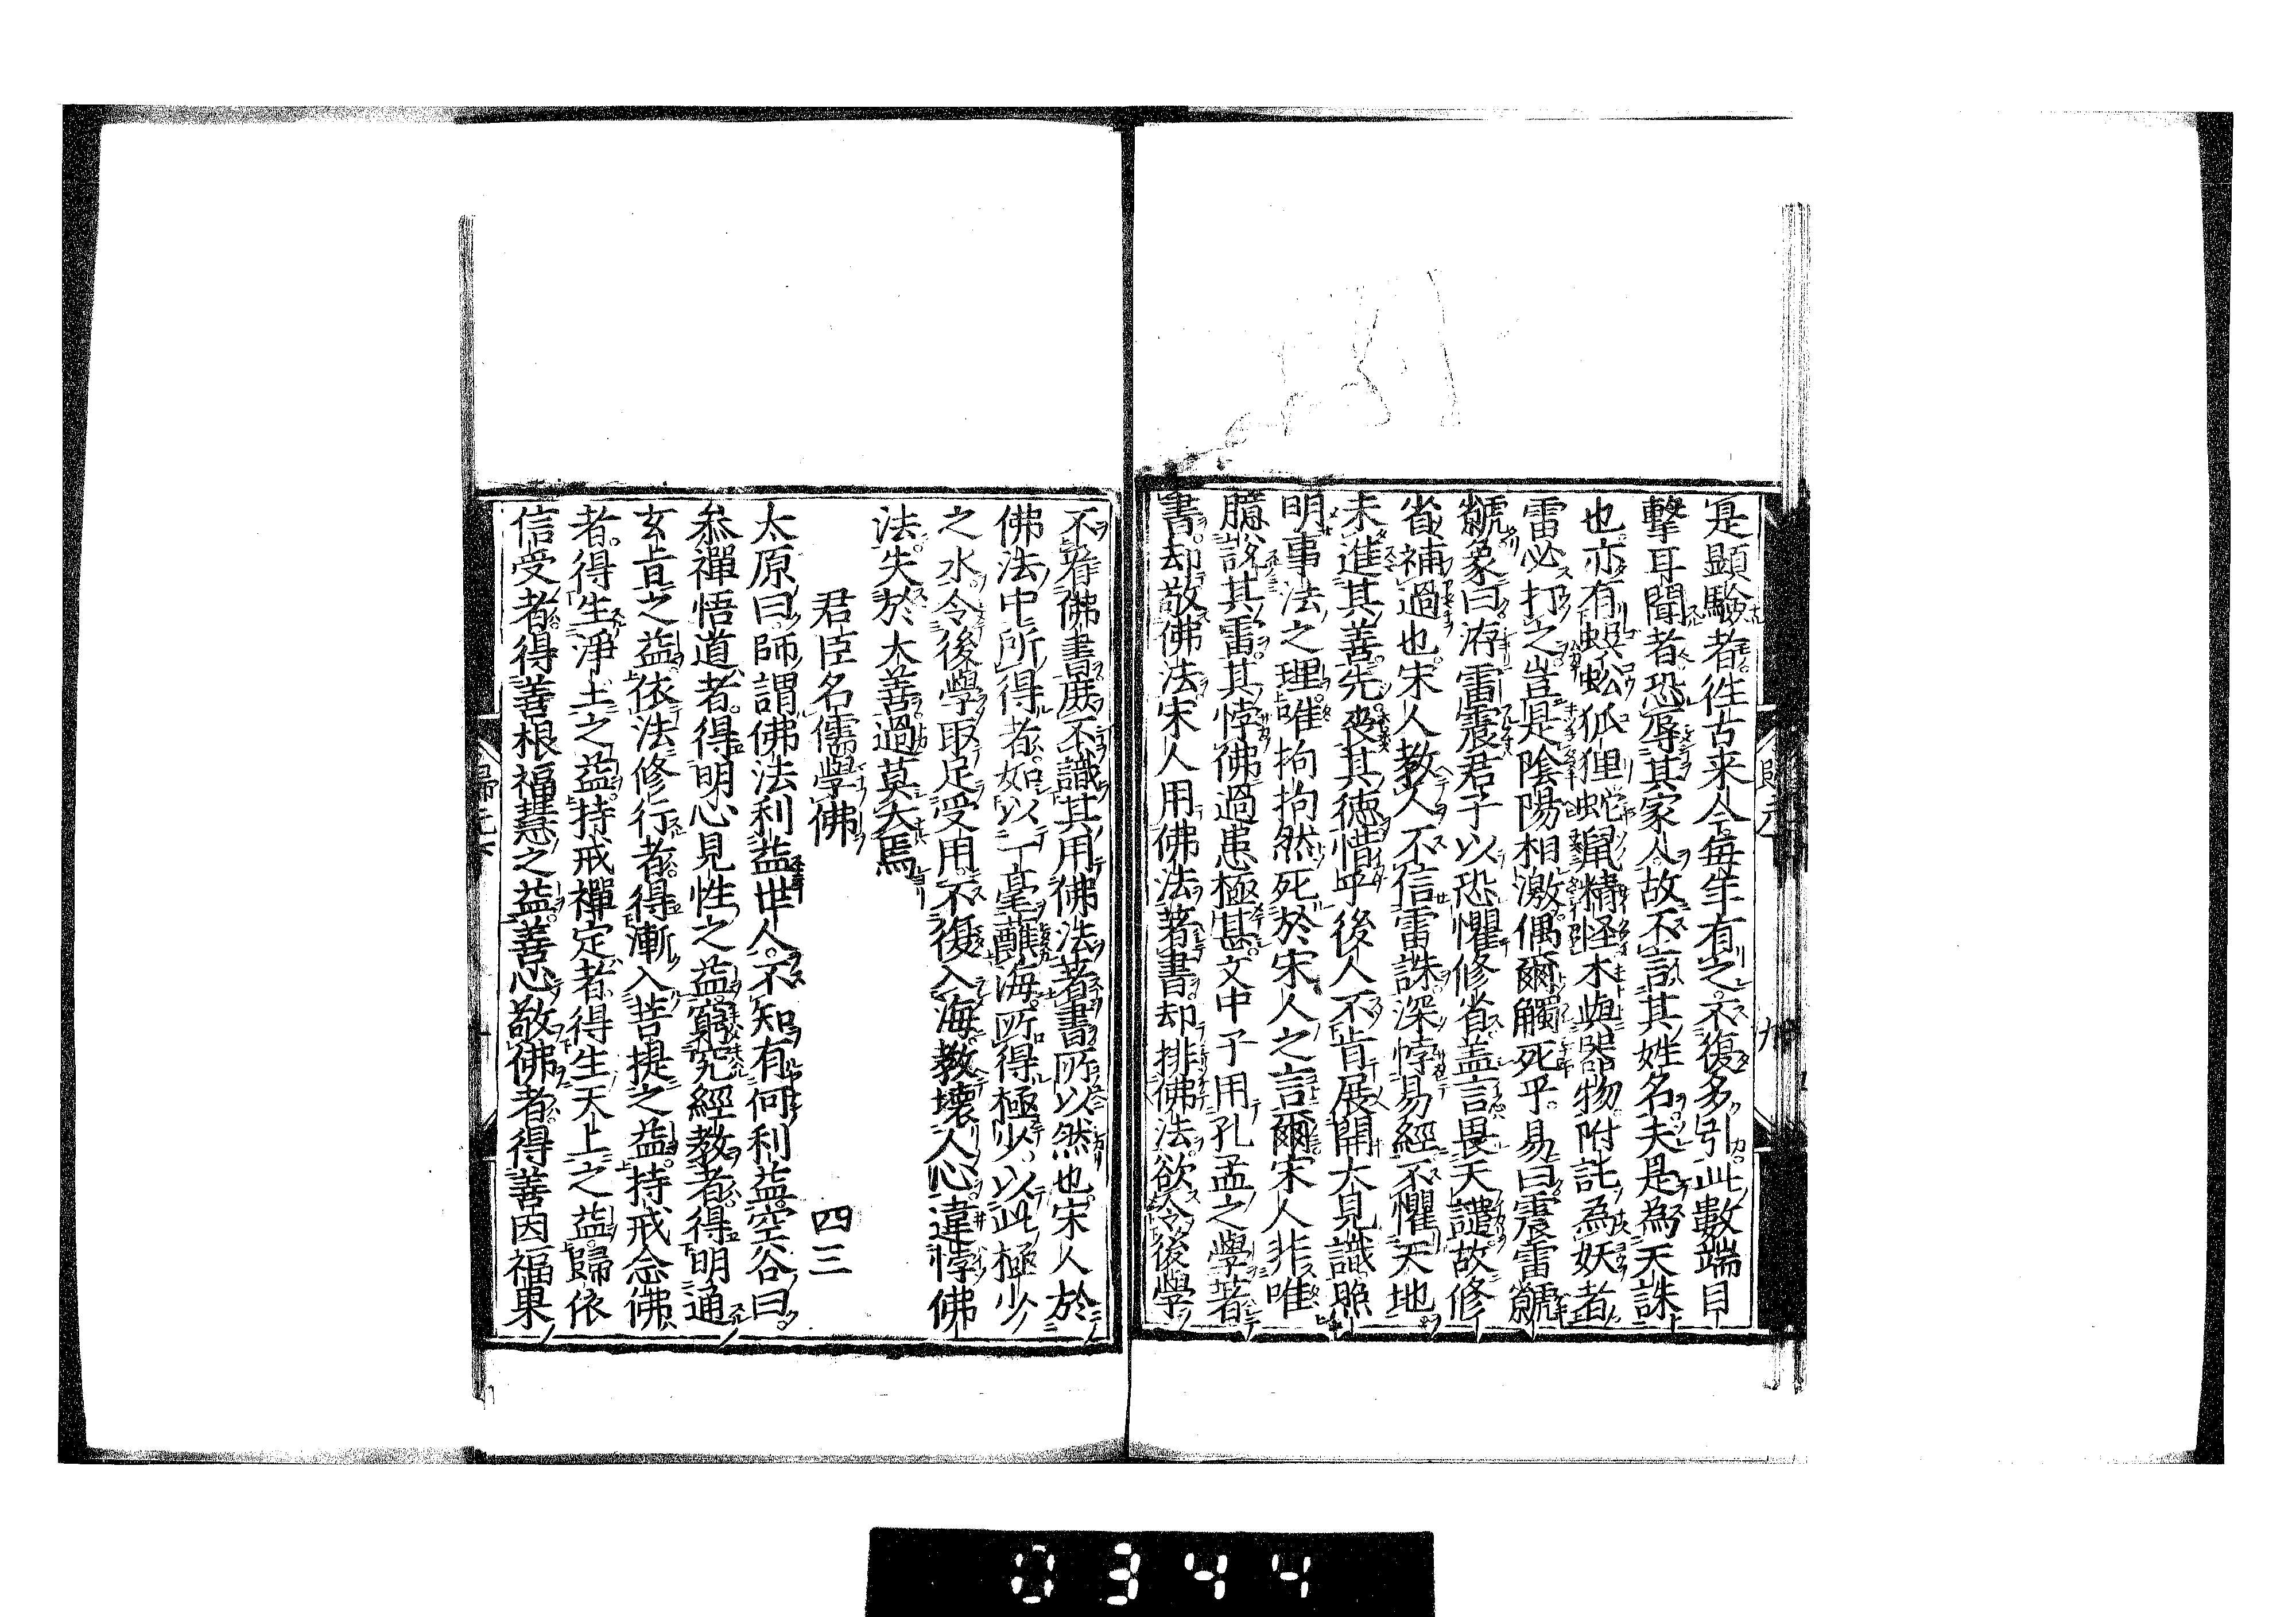 寔顯驗者徃古来今毎年有之不復多引此數端目
擊耳聞者恐辱其家人故不言其姓名夫是為天誅
也亦有蜈蚣狐狸蛇鼠精怪木與器物附託為妖者
雷必打之豈是陰陽相激偶爾觸死乎易曰震雷虩
虩象曰洊雷震君子以恐懼修省盖言畏天譴故修
省補過也宋人教人不信雷誅深悖易經不懼天地
未進其善先喪其徳惜乎後人不肯展開大見識照
明事法之理唯拘拘然死於宋人之言爾宋人非唯
臆談其雷其悖佛過患極甚文中子用孔孟之學著
書却敬佛法宋人用佛法著書却排佛法欲令後學
不看佛書庶不識其用佛法著書所以然也宋人於
佛法中所得者如以一毫蘸海所得極少以此極少
之水令後學取足受用不復入海教壞人心違悖佛
法失於大善過莫大焉
君臣名儒學佛 四三
太原曰師謂佛法利益世人不知有何利益空谷曰
叅禪悟道者得明心見性之益窮究經教者得明通
玄旨之益依法修行者得漸入菩提之益持戒念佛
者得生淨土之益持戒禪定者得生天上之益歸依
信受者得善根福慧之益善心敬佛者得善因福果
歸元下
0344